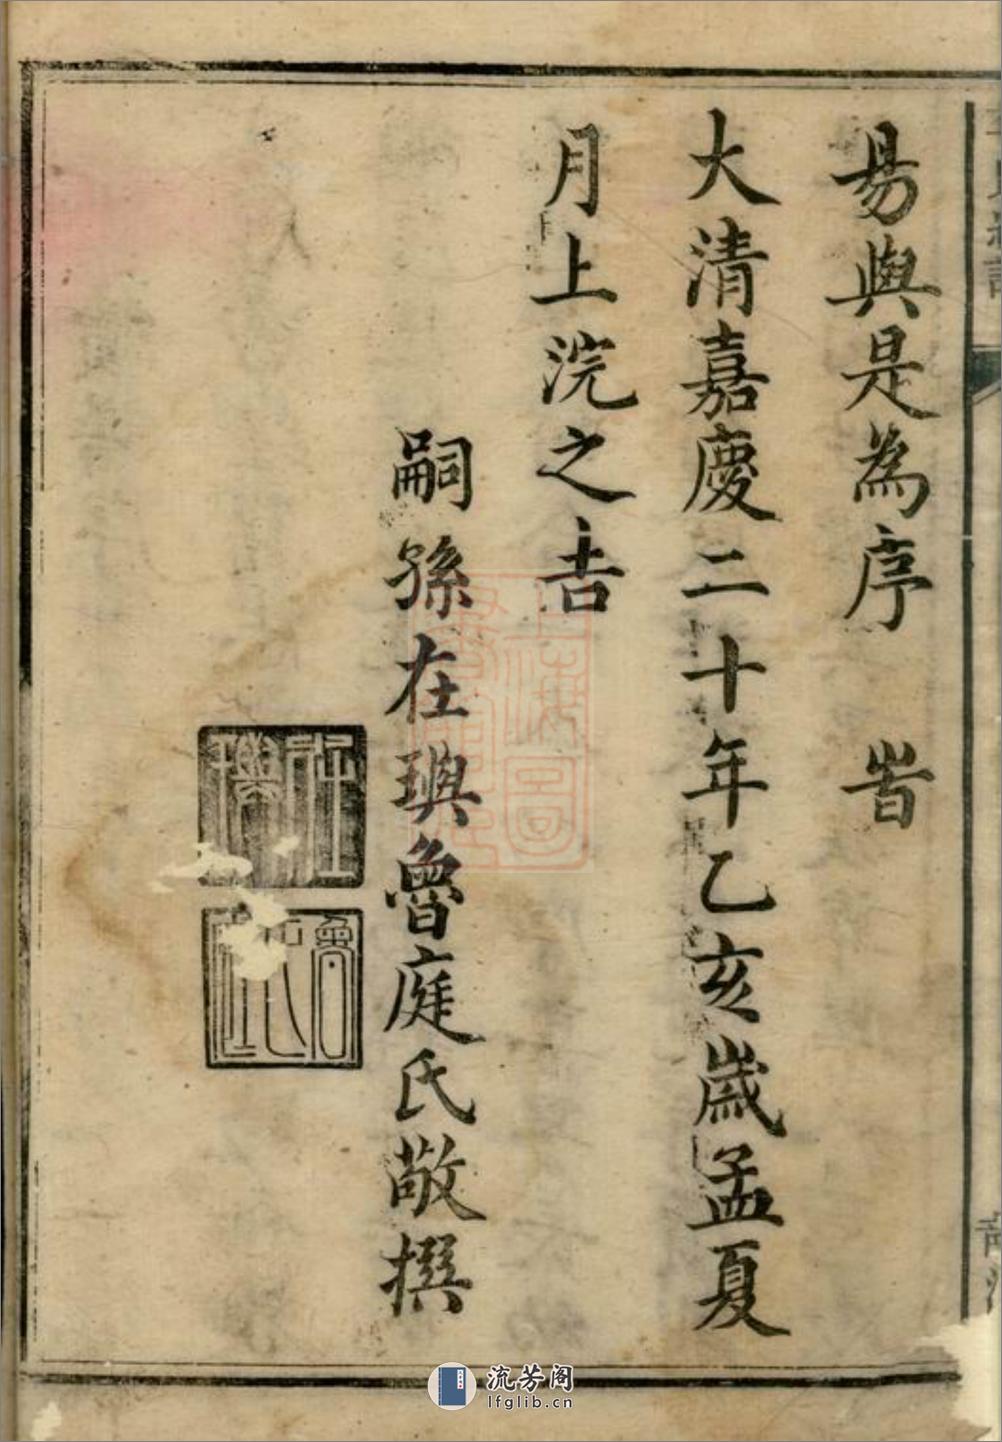 易與是為序 旹
大清嘉慶二十年乙亥歲孟夏
月上浣之吉
嗣孫在璵魯庭氏敬撰
在璵
上海圖
流芳阁
lfglib.cn